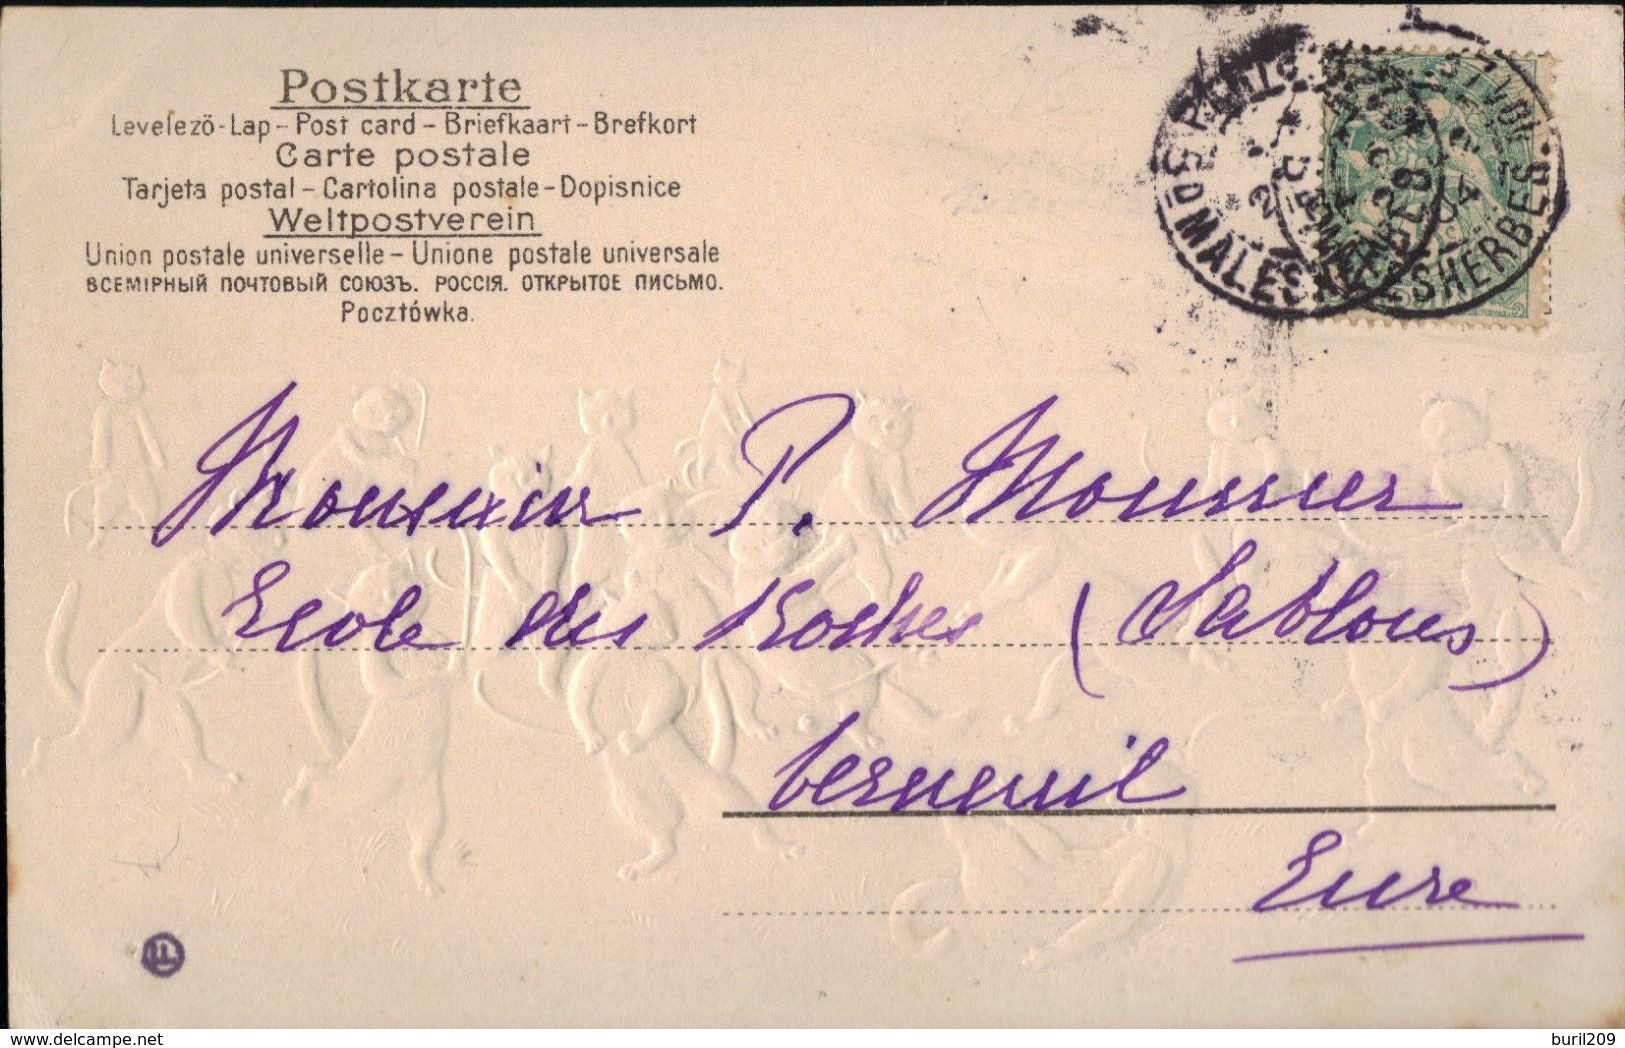 Postkarte
Levelező-Lap - Post card - Briefkaart - Brefkort
Carte postale
Tarjeta postal - Cartolina postale - Dopisnice
Weltpostverein
Union postale universelle - Unione postale universale
ВСЕМІРНЫЙ ПОЧТОВЫЙ СОЮЗЪ. РОССІЯ. ОТКРЫТОЕ ПИСЬМО.
Pocztówka.
MALESHERBES
Monsieur P. Mounier
Ecole des Roches (Sablons)
Verneuil
Eure
LL
delcampe.net
buril209